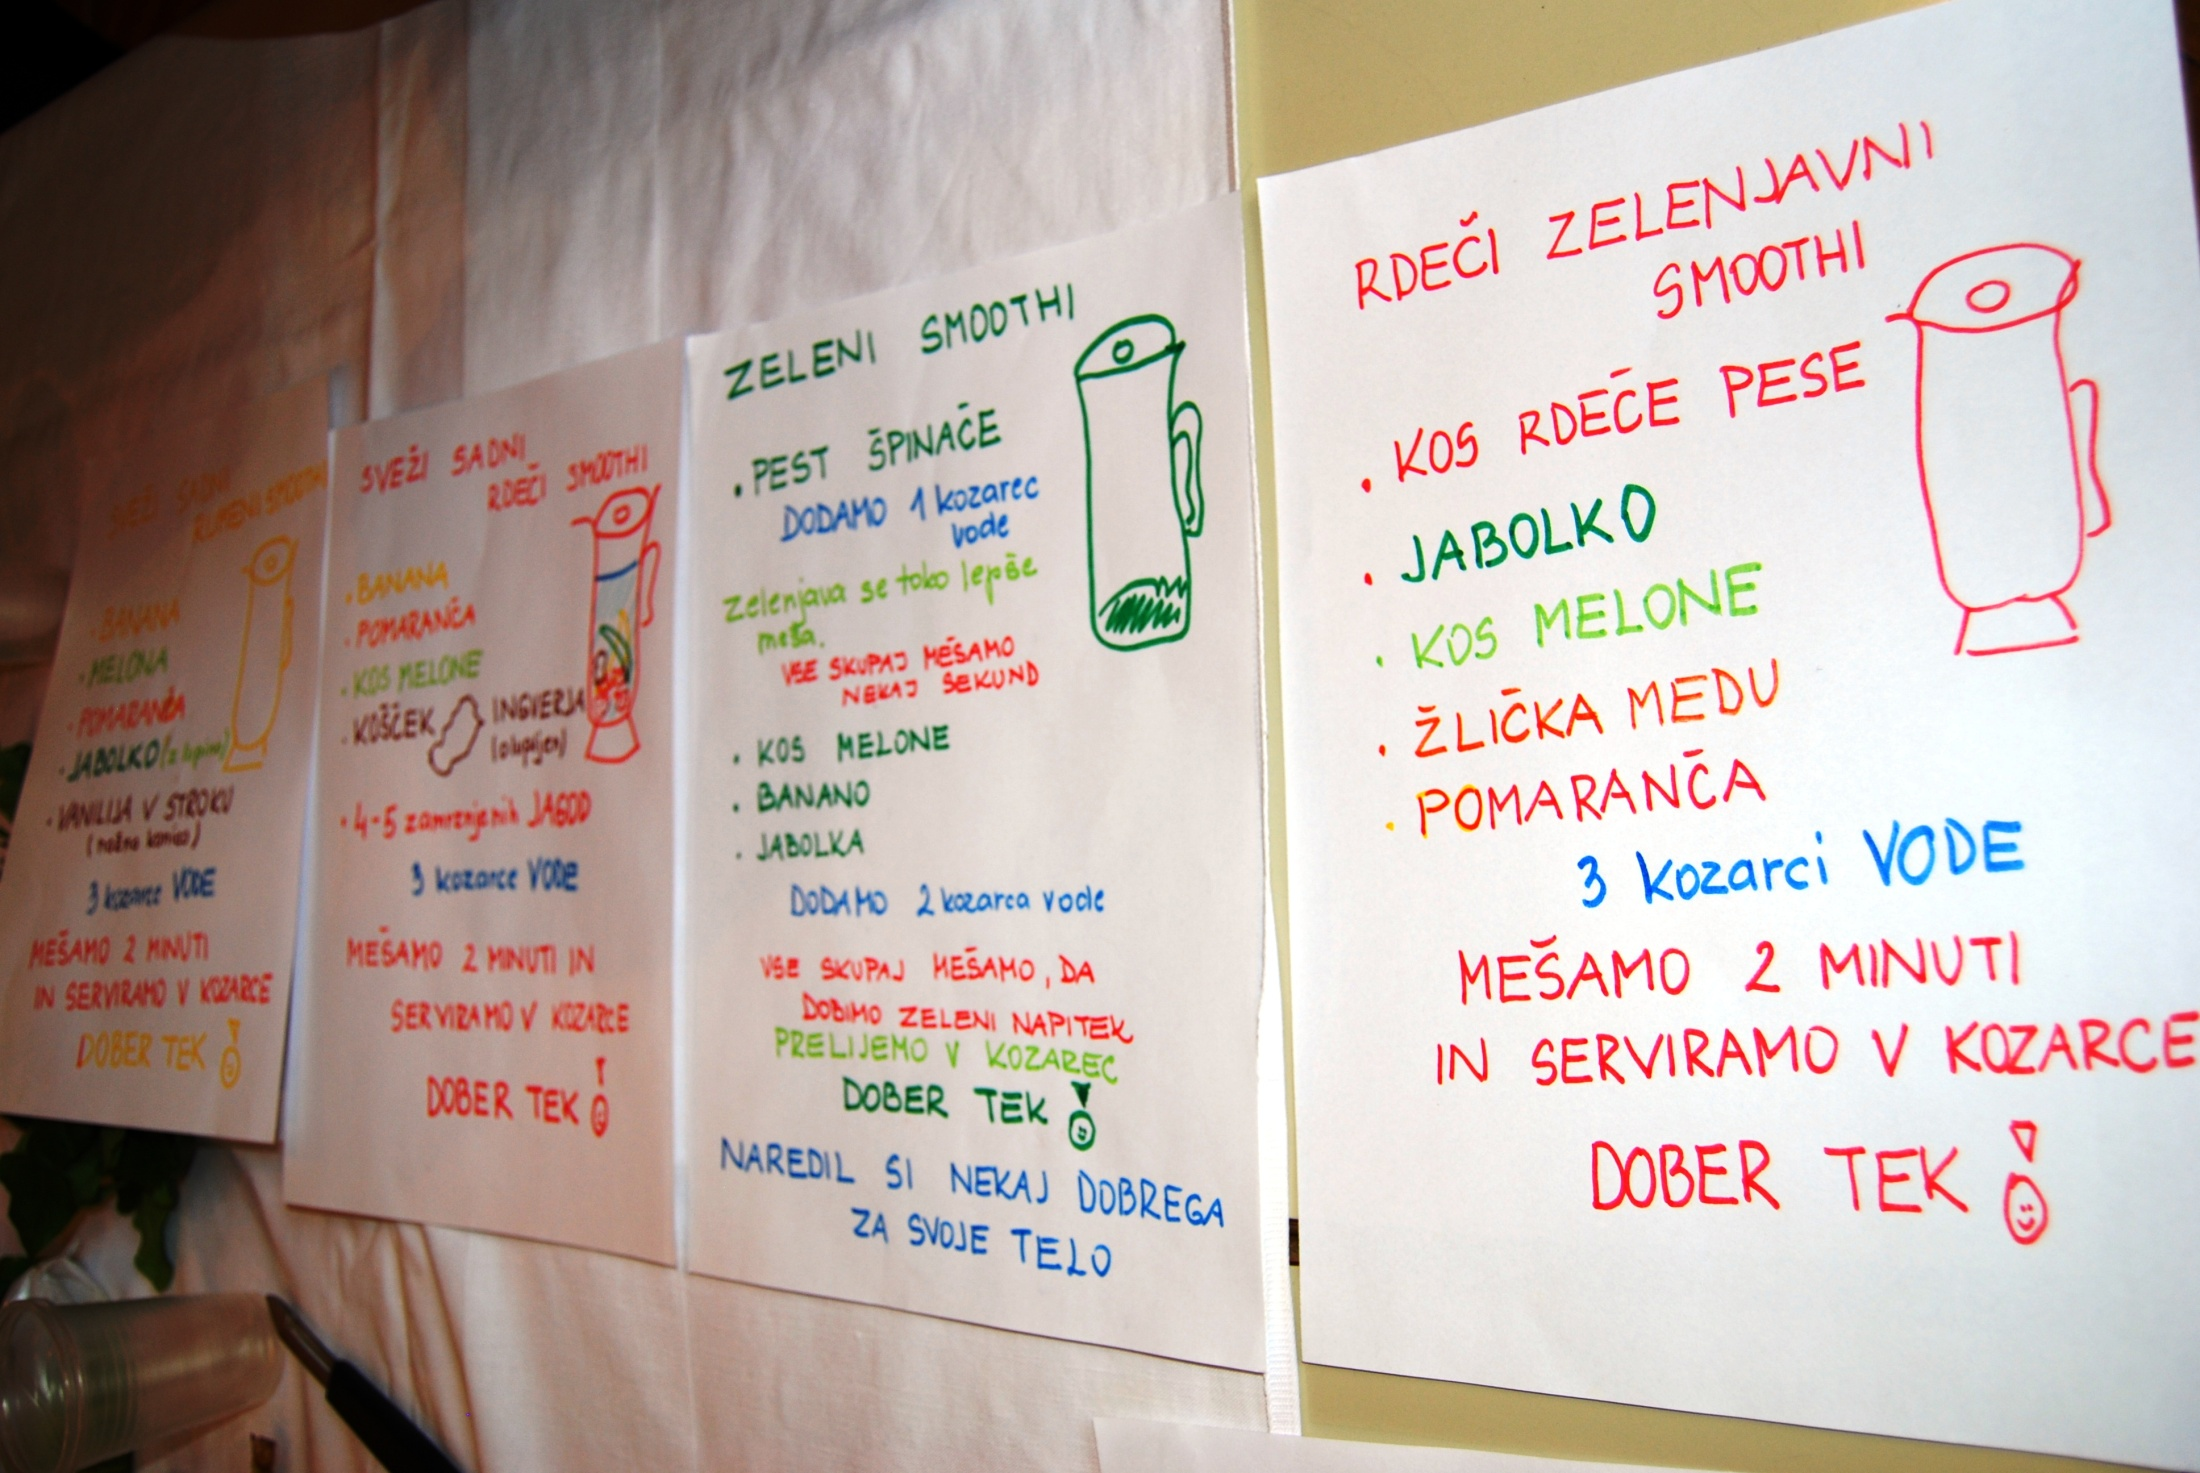 SVEŽI SADNI
RUMENI SMOOTHI
• BANANA
• MELONA
• POMARANČA
• JABOLKO (z lupino)
• VANILIJA V STROKU
3 kozarce VODE
MEŠAMO 2 MINUTI
IN SERVIRAMO V KOZARCE
DOBER TEK !
SVEŽI SADNI
RDEČI SMOOTHI
• BANANA
• POMARANČA
• KOS MELONE
• KOŠČEK INGVERJA
(olupljen)
• 4-5 zamrznjenih JAGOD
3 kozarce VODE
MEŠAMO 2 MINUTI IN
SERVIRAMO V KOZARCE
DOBER TEK !
ZELENI SMOOTHI
• PEST ŠPINAČE
DODAMO 1 kozarec
vode
Zelenjava se tako lepše
meša.
VSE SKUPAJ MEŠAMO
NEKAJ SEKUND
• KOS MELONE
• BANANO
• JABOLKA
DODAMO 2 kozarca vode
VSE SKUPAJ MEŠAMO, DA
DOBIMO ZELENI NAPITEK
PRELIJEMO V KOZAREC
DOBER TEK !
NAREDIL SI NEKAJ DOBREGA
ZA SVOJE TELO
RDEČI ZELENJAVNI
SMOOTHI
• KOS RDEČE PESE
• JABOLKO
• KOS MELONE
• ŽLIČKA MEDU
• POMARANČA
3 kozarci VODE
MEŠAMO 2 MINUTI
IN SERVIRAMO V KOZARCE
DOBER TEK !